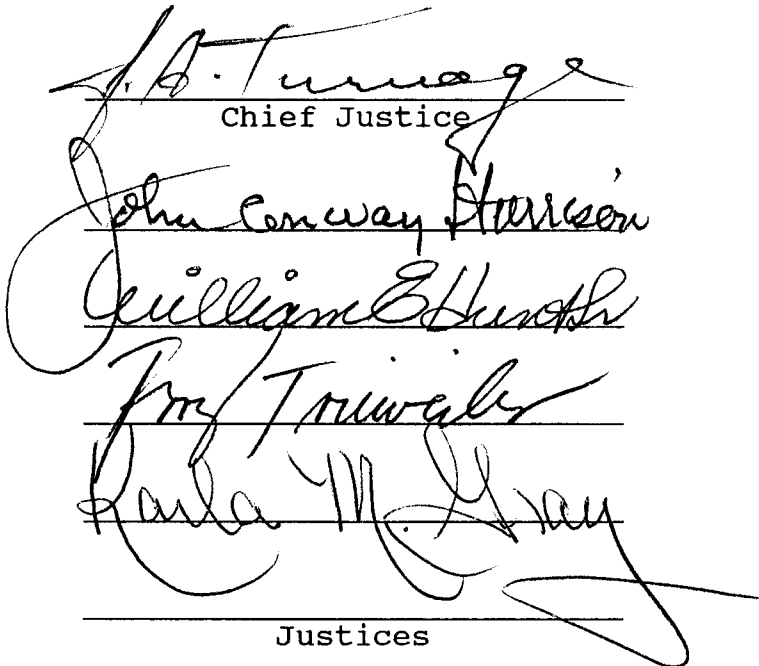 J. A. Turnage
Chief Justice
John Conway Harrison
William E Hunt Sr
Terry Trieweiler
Karla M. Gray
Justices